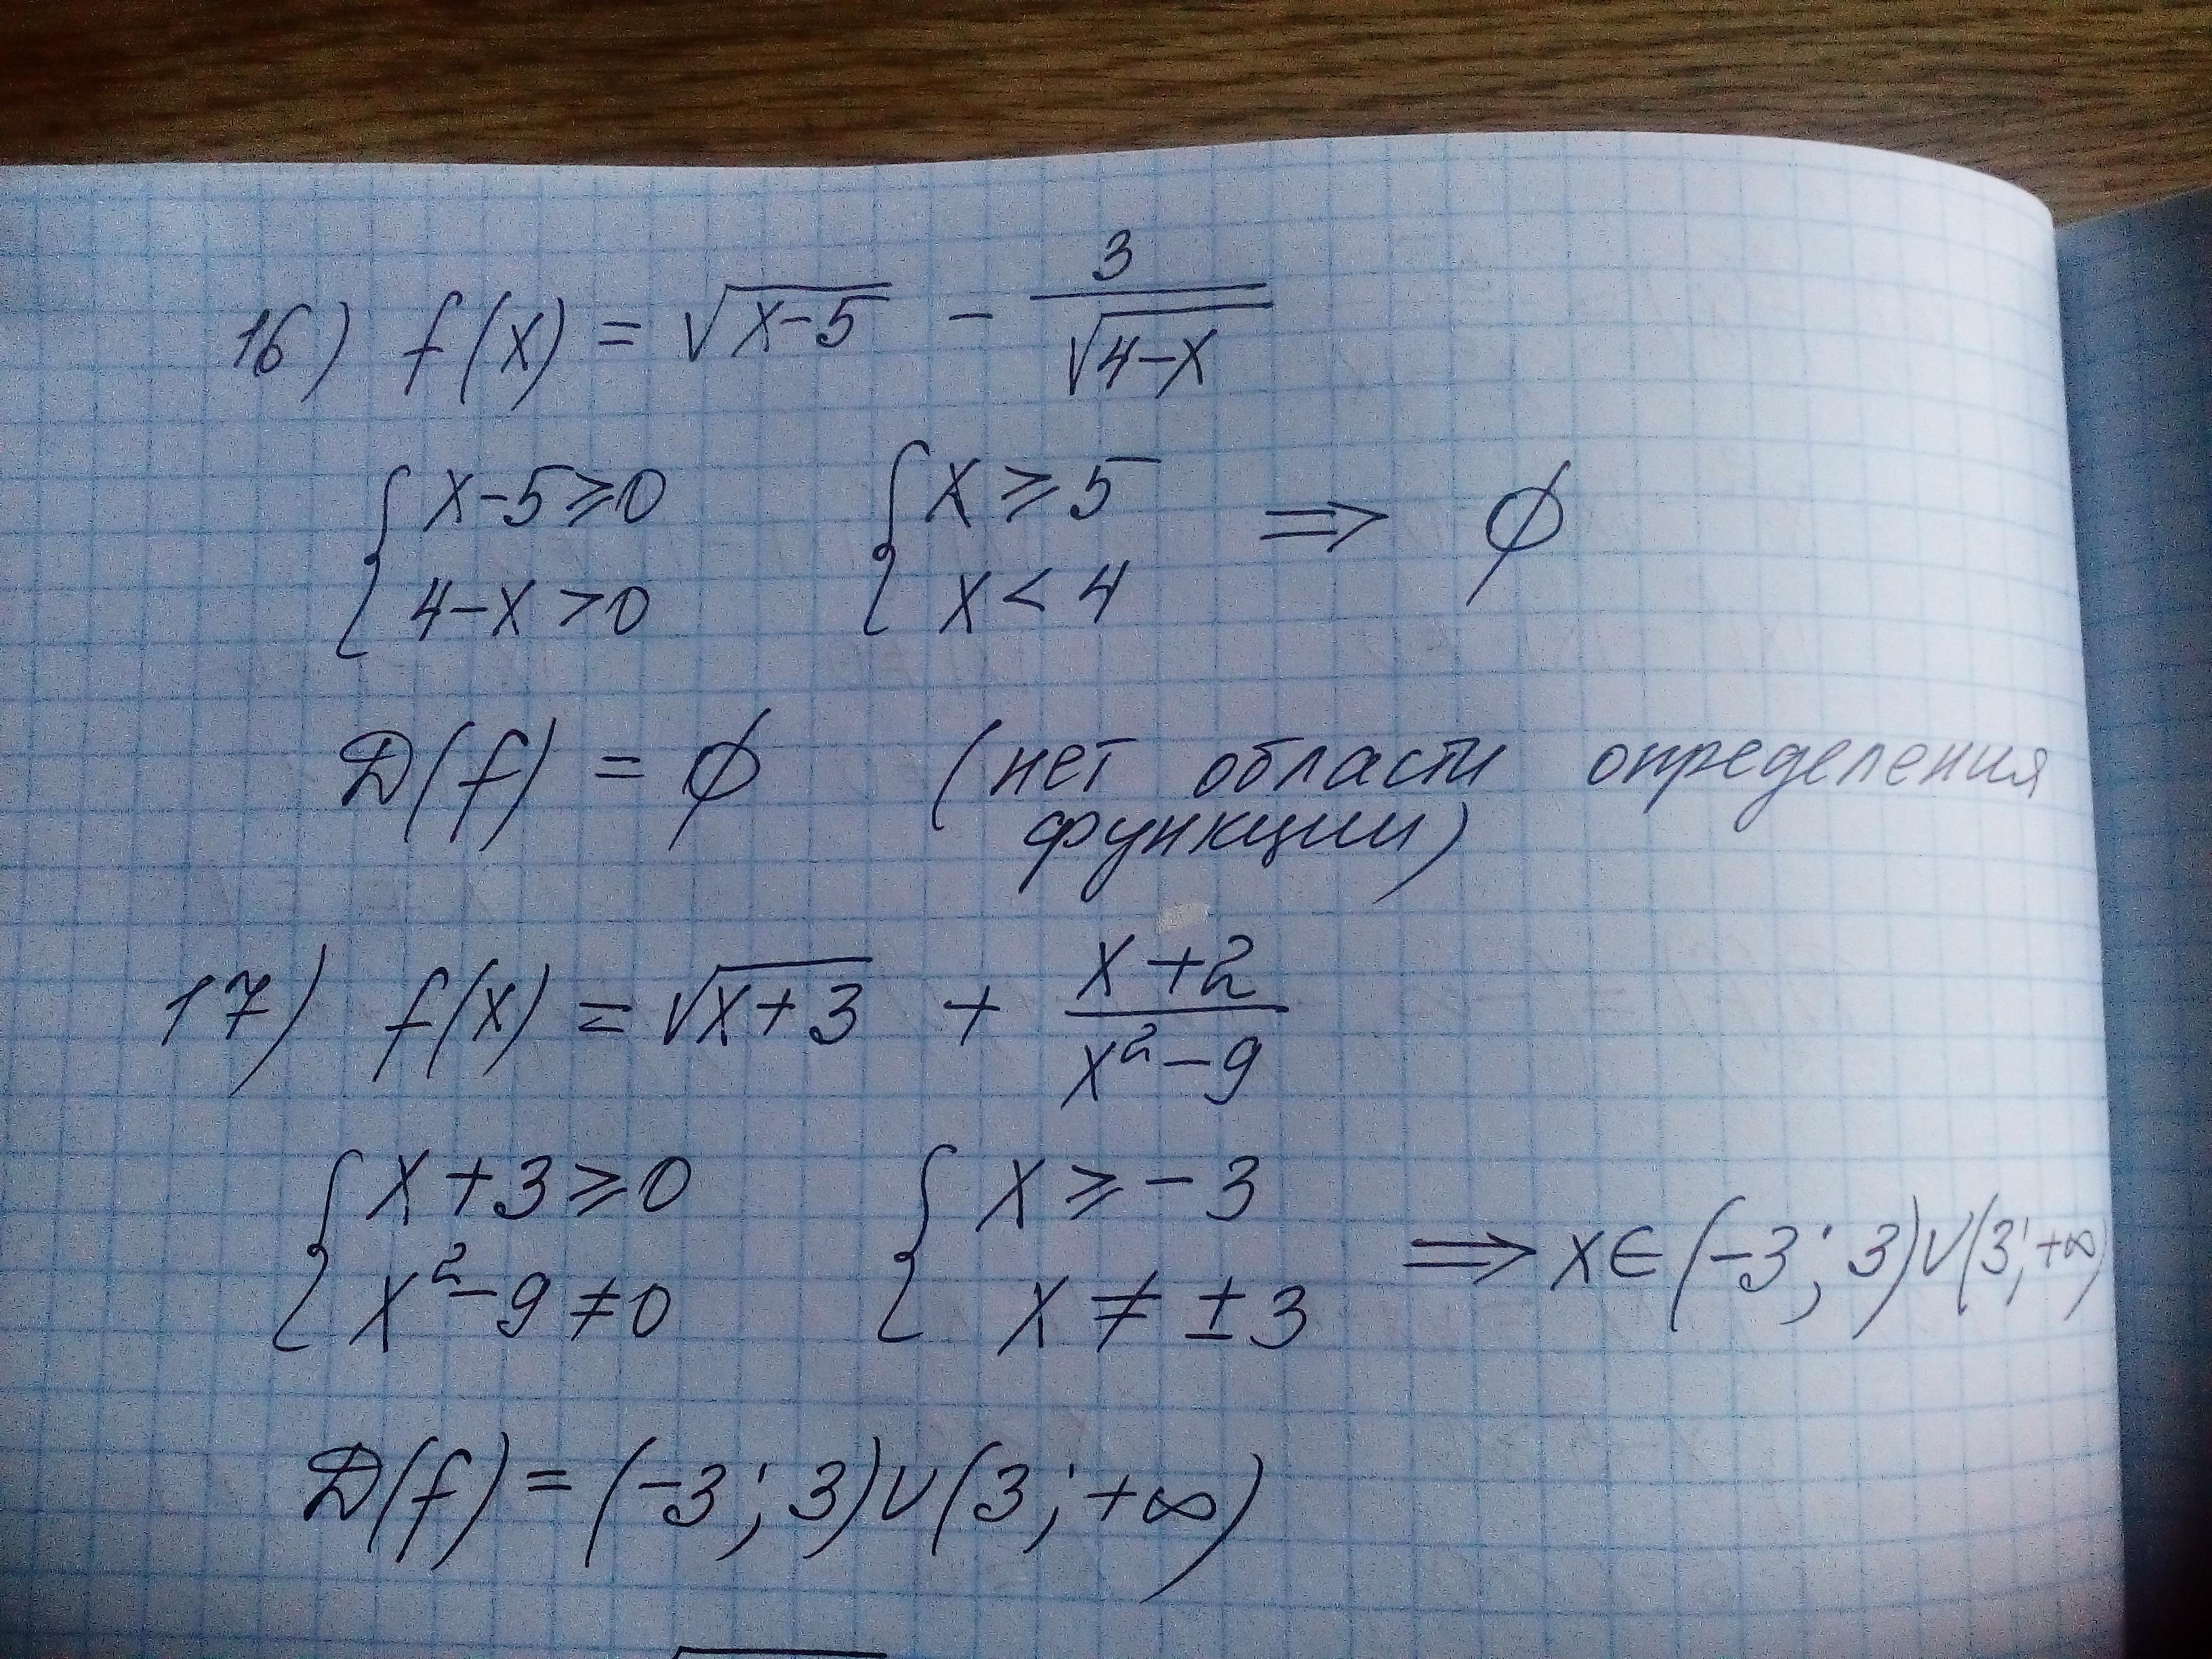 16) f(x) = √(x-5) - 3/√(4-x)
{ x-5≥0 { x≥5 ⇒ ∅
4-x>0 x<4
D(f) = ∅ (нет области определения
функции)
17) f(x) = √(x+3) + (x+2)/(x²-9)
{ x+3≥0 { x≥-3 ⇒ x∈(-3; 3)∪(3; +∞)
x²-9≠0 x≠±3
D(f) = (-3; 3)∪(3; +∞)